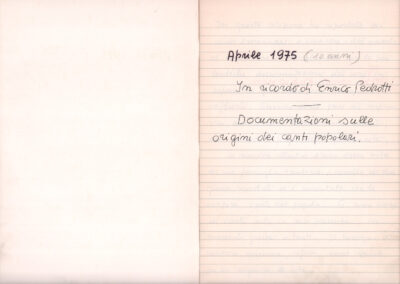 Aprile 1975 (10 anni)
In ricordo di Enrico Pedrotti
Documentazioni sulle
origini dei canti popolari.